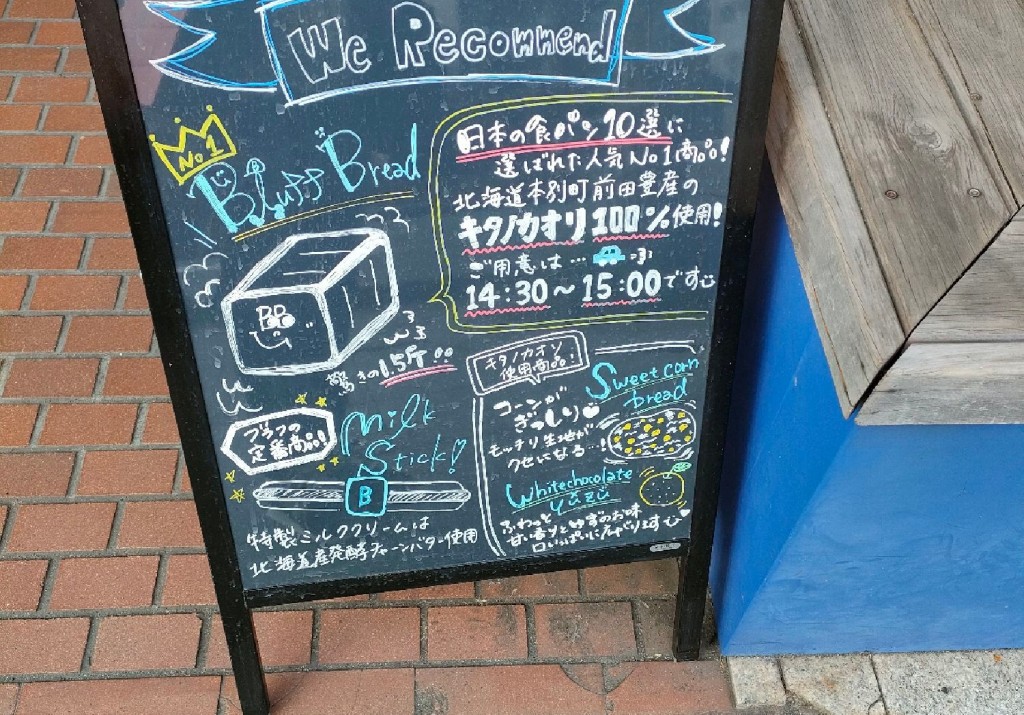 We Recommend
No1
Bluff Bread
日本の食パン10選に
選ばれた人気No1商品!
北海道本別町前田農産の
キタノカオリ100%使用!
ご用意は…
14:30〜15:00です
BB
驚きの1.5斤!!
ブラフの
定番商品!
Milk
Stick!
B
特製ミルククリームは
北海道産発酵チャーンバター使用
キタノカオリ
使用商品!
Sweet corn
bread
コーンが
ぎっしり
モッチリ生地が
クセになる…!
Whitechocolate
yuzu
ふわっと
甘い香りとゆずのお味
口いっぱいに広がります